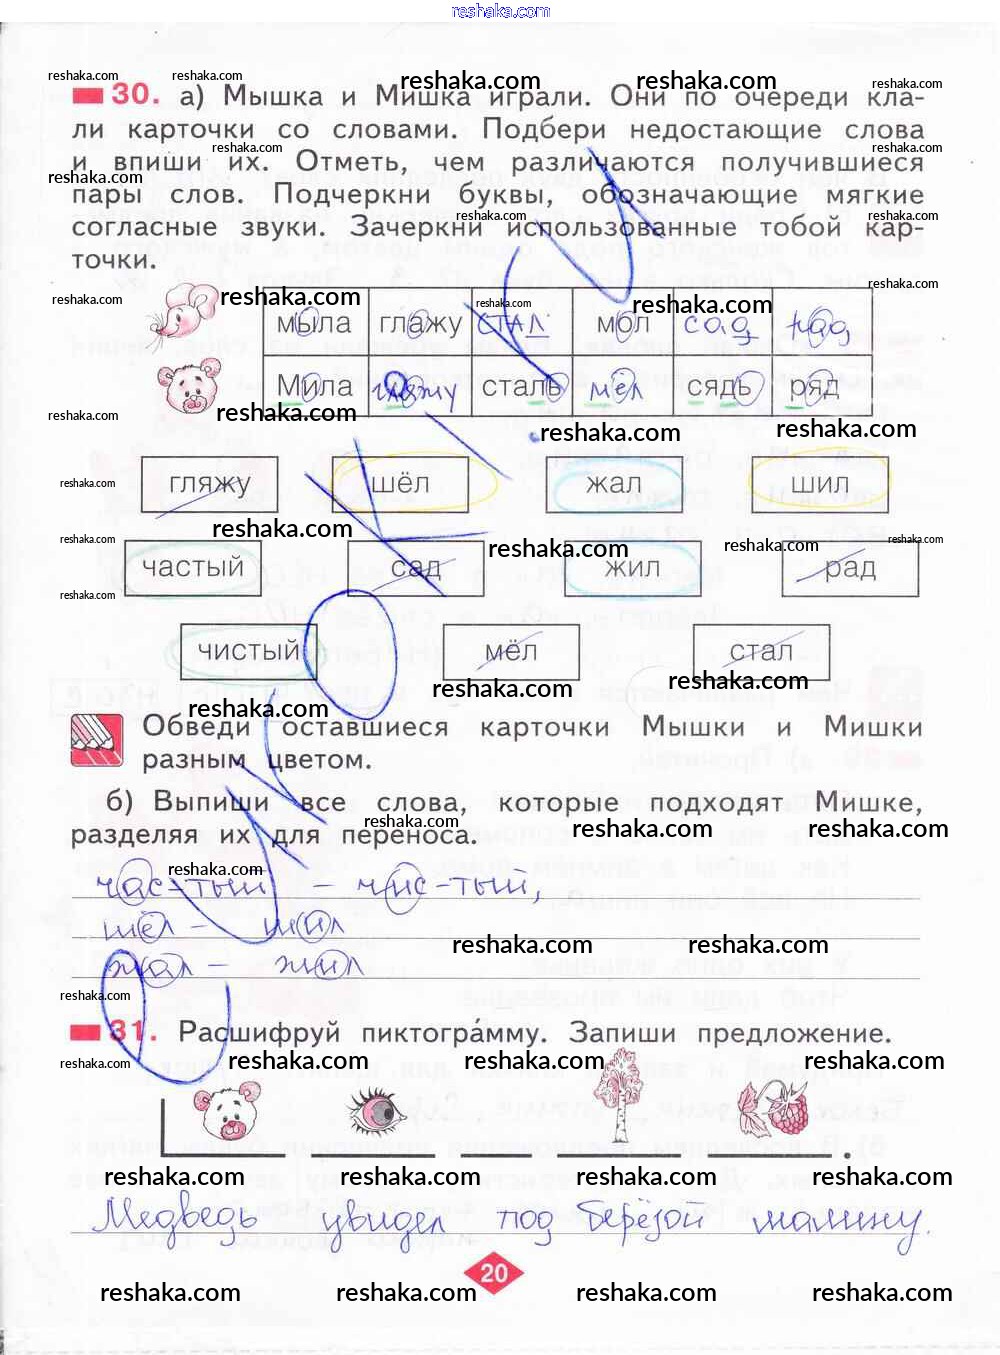 reshaka.com
reshaka.com reshaka.com reshaka.com reshaka.com reshaka.com
30. а) Мышка и Мишка играли. Они по очереди кла-
ли карточки со словами. Подбери недостающие слова
reshaka.com reshaka.com
и впиши их. Отметь, чем различаются получившиеся
reshaka.com reshaka.com
пары слов. Подчеркни буквы, обозначающие мягкие
reshaka.com reshaka.com
согласные звуки. Зачеркни использованные тобой кар-
точки.
reshaka.com reshaka.com reshaka.com reshaka.com reshaka.com
мыла глажу стал мол сад рад
Мила гляжу сталь мёл сядь ряд
reshaka.com reshaka.com reshaka.com reshaka.com
гляжу шёл жал шил
reshaka.com reshaka.com
reshaka.com reshaka.com reshaka.com reshaka.com
частый сад жил рад
reshaka.com
чистый мёл стал
reshaka.com reshaka.com reshaka.com
Обведи оставшиеся карточки Мышки и Мишки
разным цветом.
б) Выпиши все слова, которые подходят Мишке,
reshaka.com reshaka.com
разделяя их для переноса.
reshaka.com
час-тый - чис-тый,
шёл - шил
reshaka.com reshaka.com
жал - жил
reshaka.com
31. Расшифруй пиктогра́мму. Запиши предложение.
reshaka.com reshaka.com reshaka.com reshaka.com
reshaka.com reshaka.com reshaka.com reshaka.com
Медведь увидел под берёзой малину.
20
reshaka.com reshaka.com reshaka.com reshaka.com